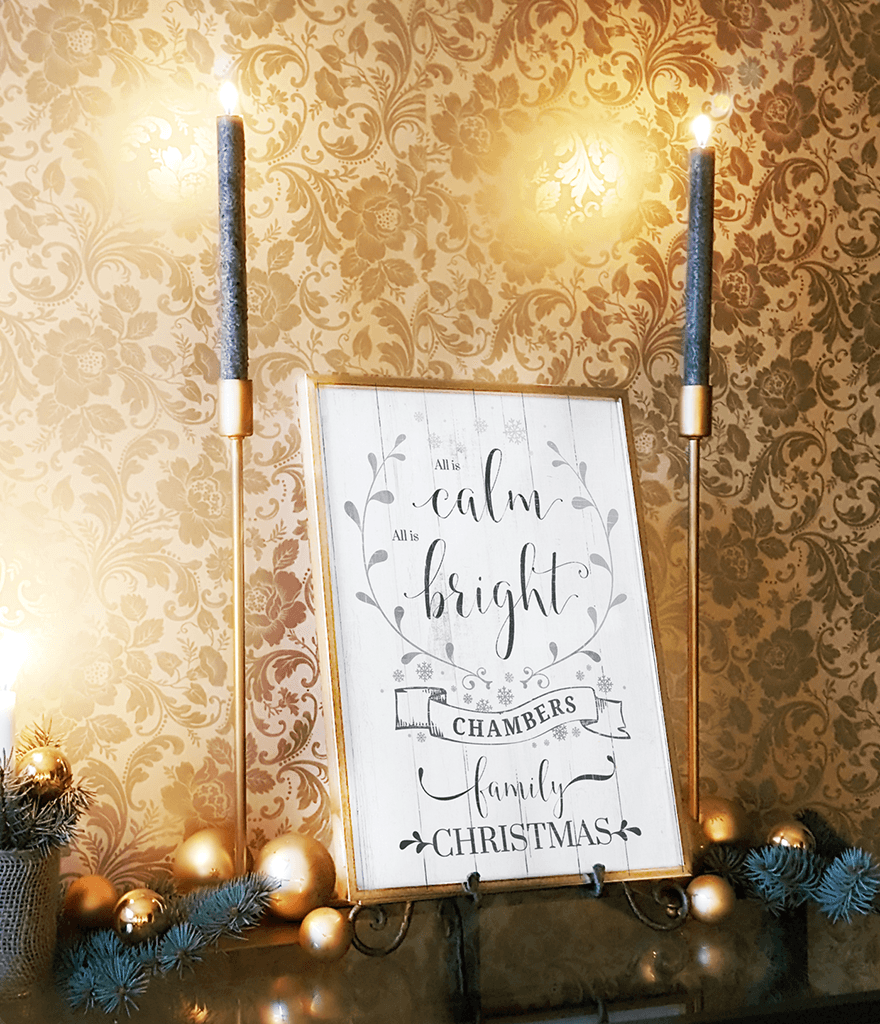 All is
calm
All is
bright
CHAMBERS
family
CHRISTMAS